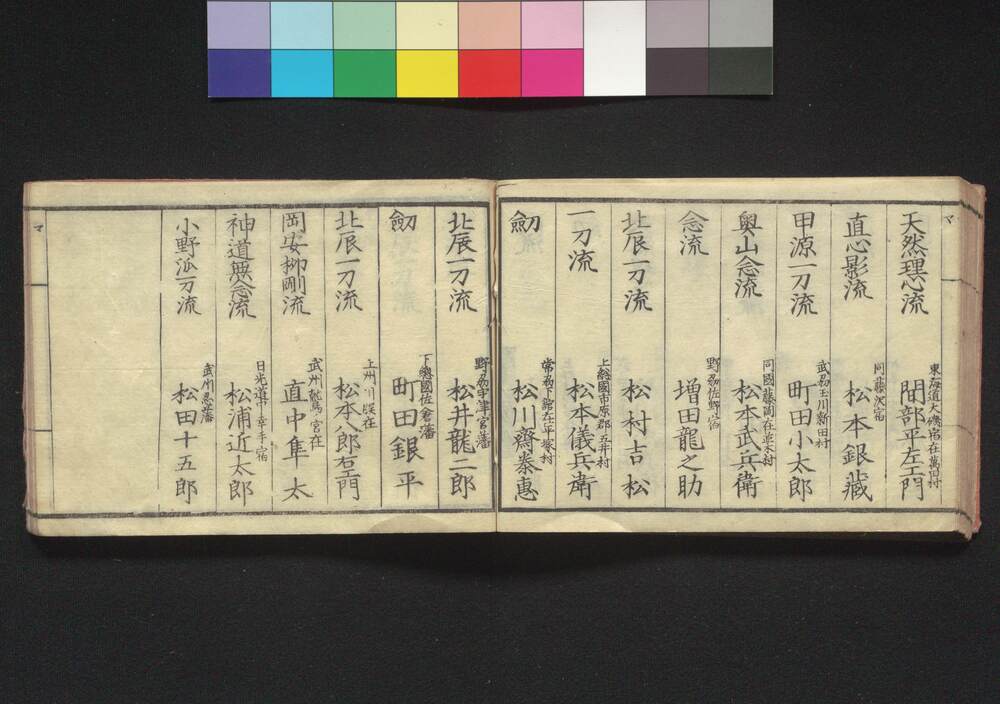 マ
天然理心流
東海道大磯宿在萬田村
間部平左エ門
直心影流
同藤沢宿
松本銀藏
甲源一刀流
武刕玉川新田村
町田小太郎
奥山念流
同國藤岡在並木村
松本武兵衛
念流
野刕佐野宿
増田龍之助
北辰一刀流
松村吉松
一刀流
上総國市原郡五井村
松本儀兵衛
劔
常刕下館在平塚村
松川齋泰惠
北辰一刀流
野刕宇津宮藩
松井龍二郎
劔
下總國佐倉藩
町田銀平
北辰一刀流
松本八郎右エ門
岡安柳剛流
武州鷲宮在
直中隼太
神道無念流
日光道中幸手宿
松浦近太郎
小野派一刀流
武州忍藩
松田十五郎
マ